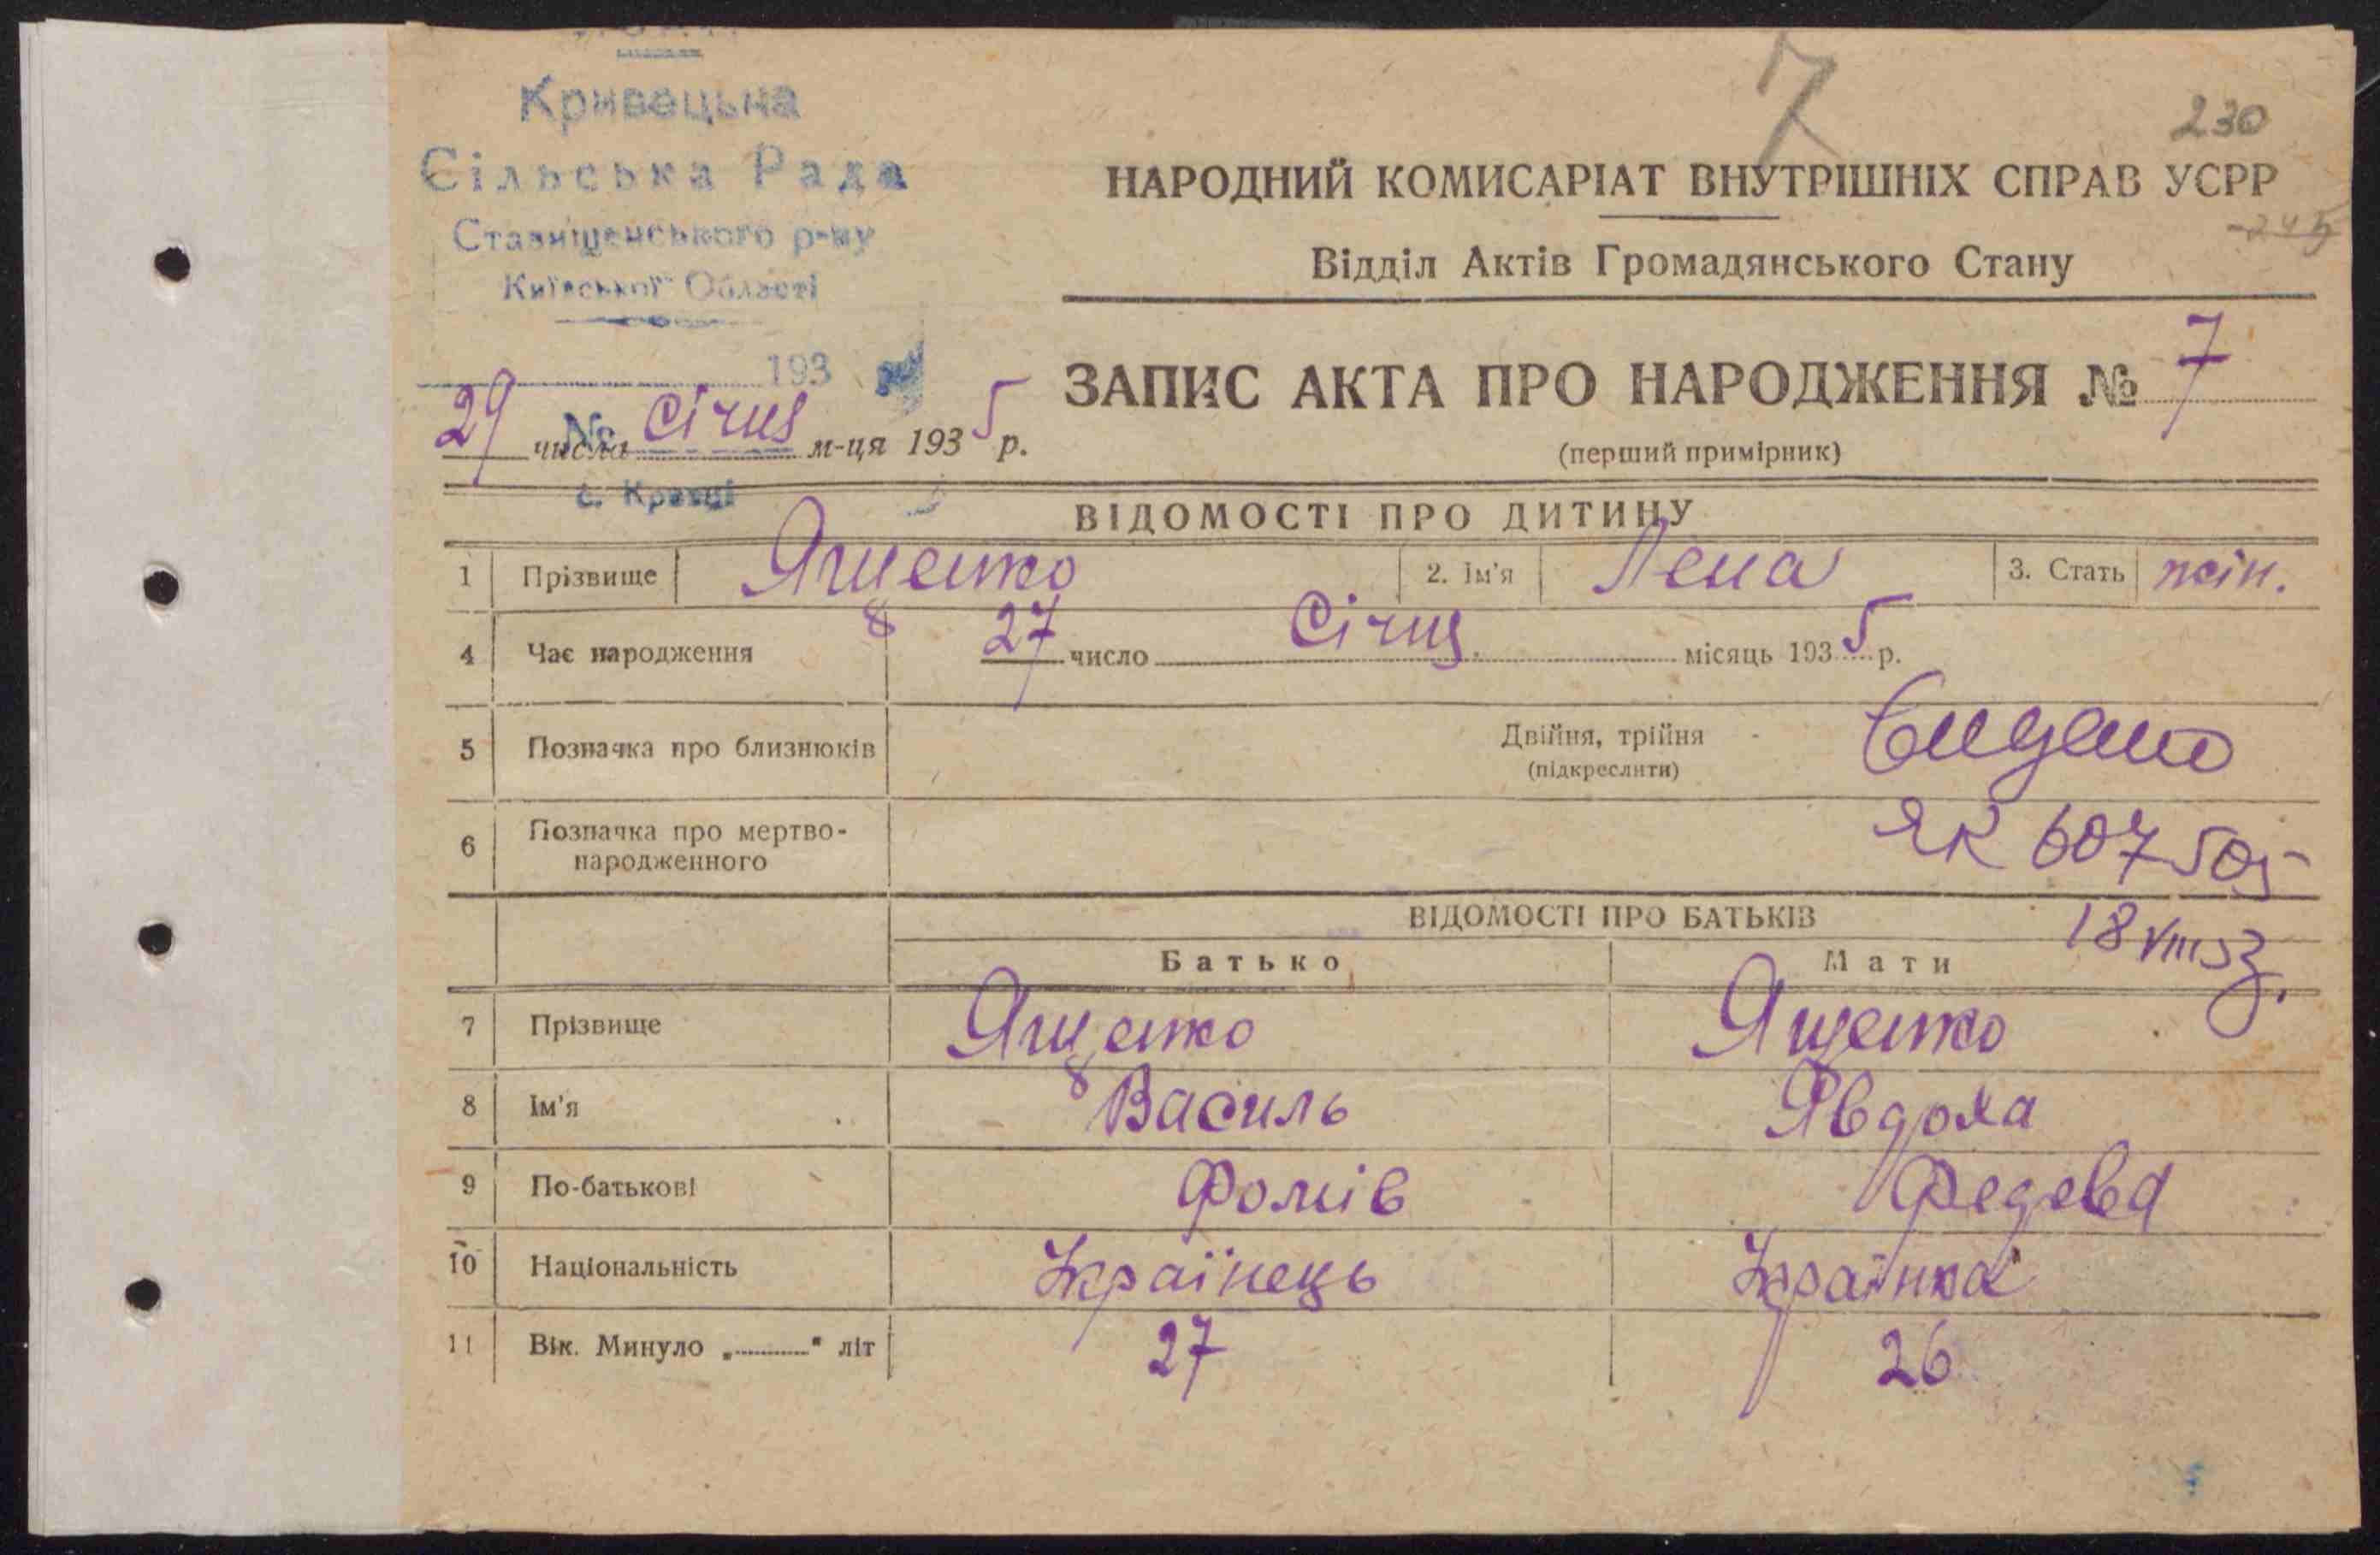 Кривецька
Сільська Рада
Ставищенського р-ну
Київської Області
193
№
с. Кривці
7
230
245
НАРОДНИЙ КОМИСАРІАТ ВНУТРІШНІХ СПРАВ УСРР
Відділ Актів Громадянського Стану
ЗАПИС АКТА ПРО НАРОДЖЕННЯ № 7
(перший примірник)
29 числа Січня м-ця 1935 р.
ВІДОМОСТІ ПРО ДИТИНУ
1 Прізвище Ященко 2. Ім'я Лена 3. Стать жін.
4 Час народження 27 число Січня місяць 1935 р.
5 Позначка про близнюків Двійня, трійня
(підкреслити)
Видано
6 Позначка про мертво-
народженного
ЯК 607505
18 VIII 53
ВІДОМОСТІ ПРО БАТЬКІВ
Батько Мати
7 Прізвище Ященко Ященко
8 Ім'я Василь Явдоха
9 По-батькові Фомів
10 Національність Українець Українка
11 Вік. Минуло „ “ літ 27 26